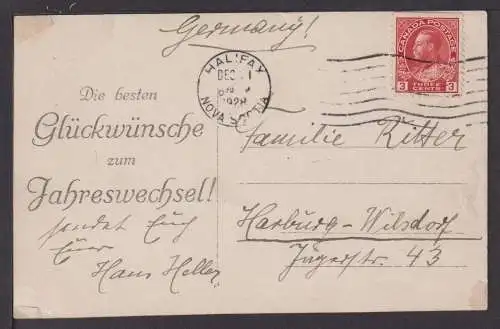 Germany!
CANADA POSTAGE
3 THREE CENTS 3
HALIFAX
DEC 1
1928
NOVA SCOTIA
Die besten
Glückwünsche
zum
Jahreswechsel!
sendet Euch
Euer
Hans Heller
Familie Ritter
Harburg-Wilsdorf
Jägerstr. 43